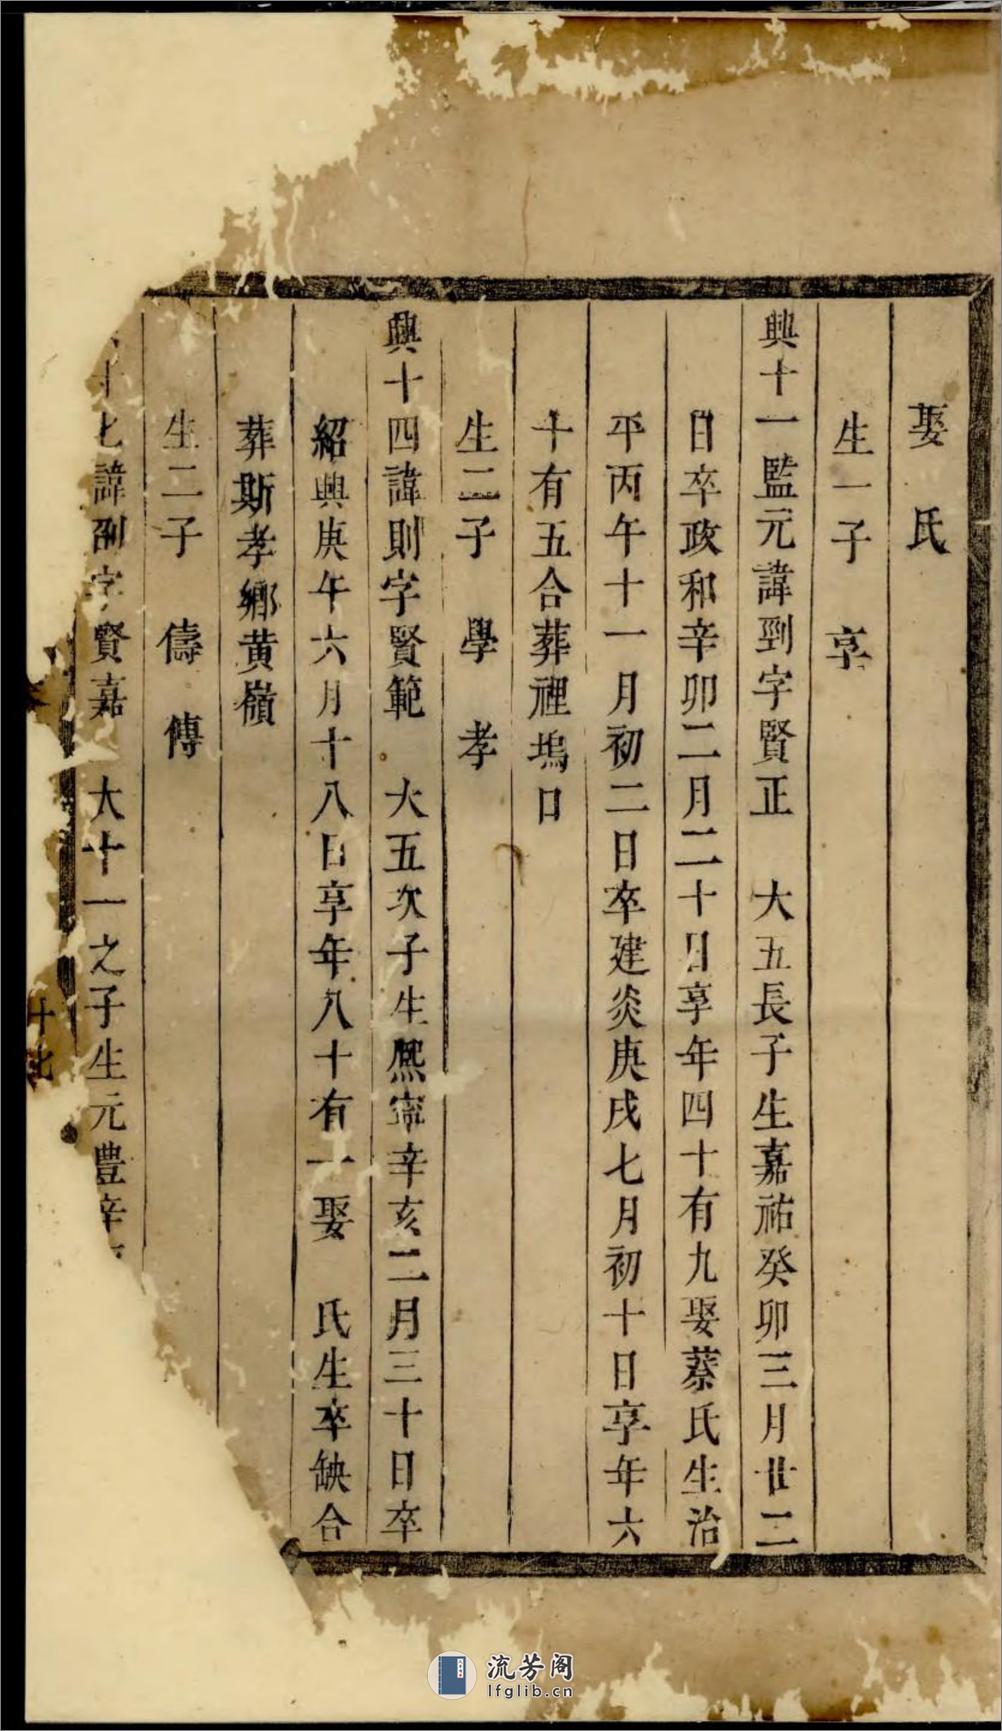 娶　氏
生一子　享
興十一監元諱到字賢正　大五長子生嘉祐癸卯三月廿二
日卒政和辛卯二月二十日享年四十有九娶蔡氏生治
平丙午十一月初二日卒建炎庚戌七月初十日享年六
十有五合葬裡塢口
生二子　學　孝
興十四諱則字賢範　大五次子生熈寧辛亥二月三十日卒
紹興庚午六月十八日享年八十有一娶　氏生卒缺合
葬斯孝鄉黄嶺
生二子　儔　傳
十七諱㓮字賢嘉　大十一之子生元豊辛
十七
流芳阁
lfglib.cn